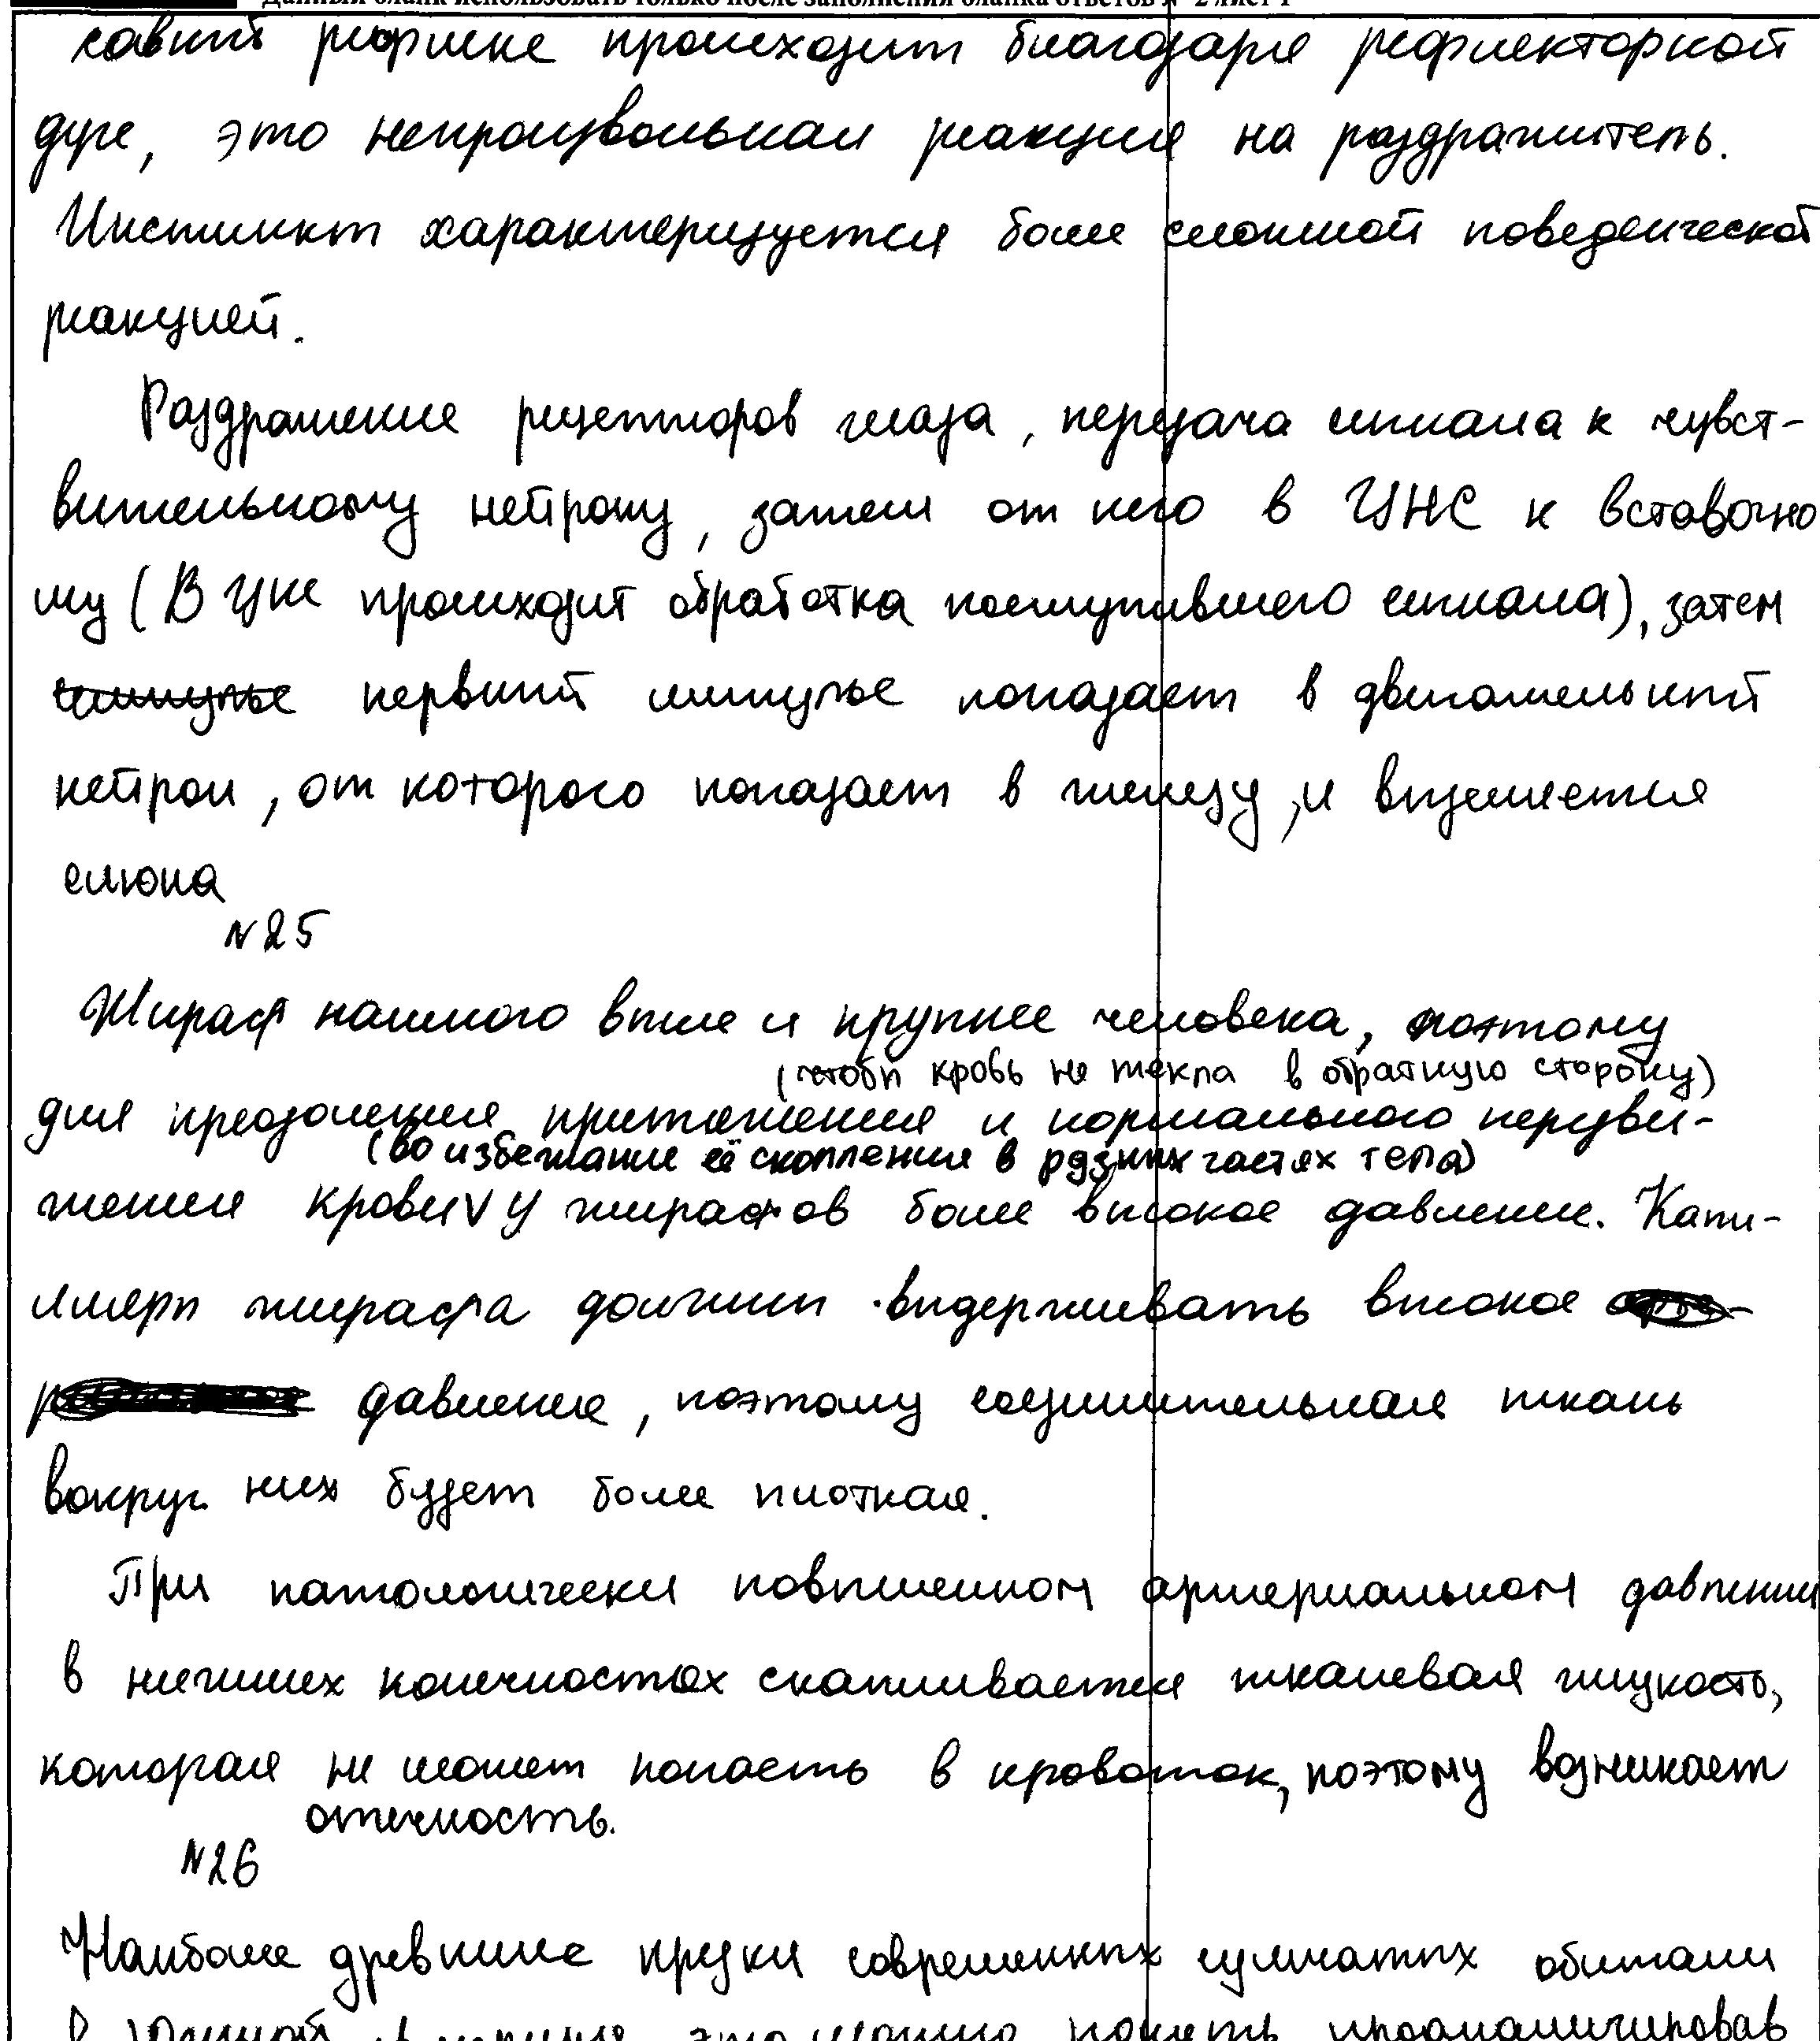 Данный бланк использовать только после заполнения бланка ответов № 2 лист 1
рефлекс происходит благодаря рефлекторной
дуге, это непроизвольная реакция на раздражитель.
Инстинкт характеризуется более сложной поведенческой
реакцией.
Раздражение рецепторов глаза, передача сигнала к чувст-
вительному нейрону, затем от него в ЦНС к вставочно
му (В ЦНС происходит обработка поступившего сигнала), затем
нервный импульс попадает в двигательный
нейрон, от которого попадает в железу, и выделяется
слюна
№25
Жираф намного выше и крупнее человека, поэтому
(чтобы кровь не текла в обратную сторону)
для преодоления притяжения и нормального передви-
(во избежание её скопления в разных частях тела)
жения крови V у жирафов более высокое давление. Капи-
лляры жирафа должны выдерживать высокое
давление, поэтому соединительная ткань
вокруг них будет более плотная.
При патологически повышенном артериальном давлении
в нижних конечностях скапливается тканевая жидкость,
которая не может попасть в кровоток, поэтому возникает
отечность.
№26
Наиболее древние предки современных сумчатых обитали
в Южной Америке, это можно понять проанализировав